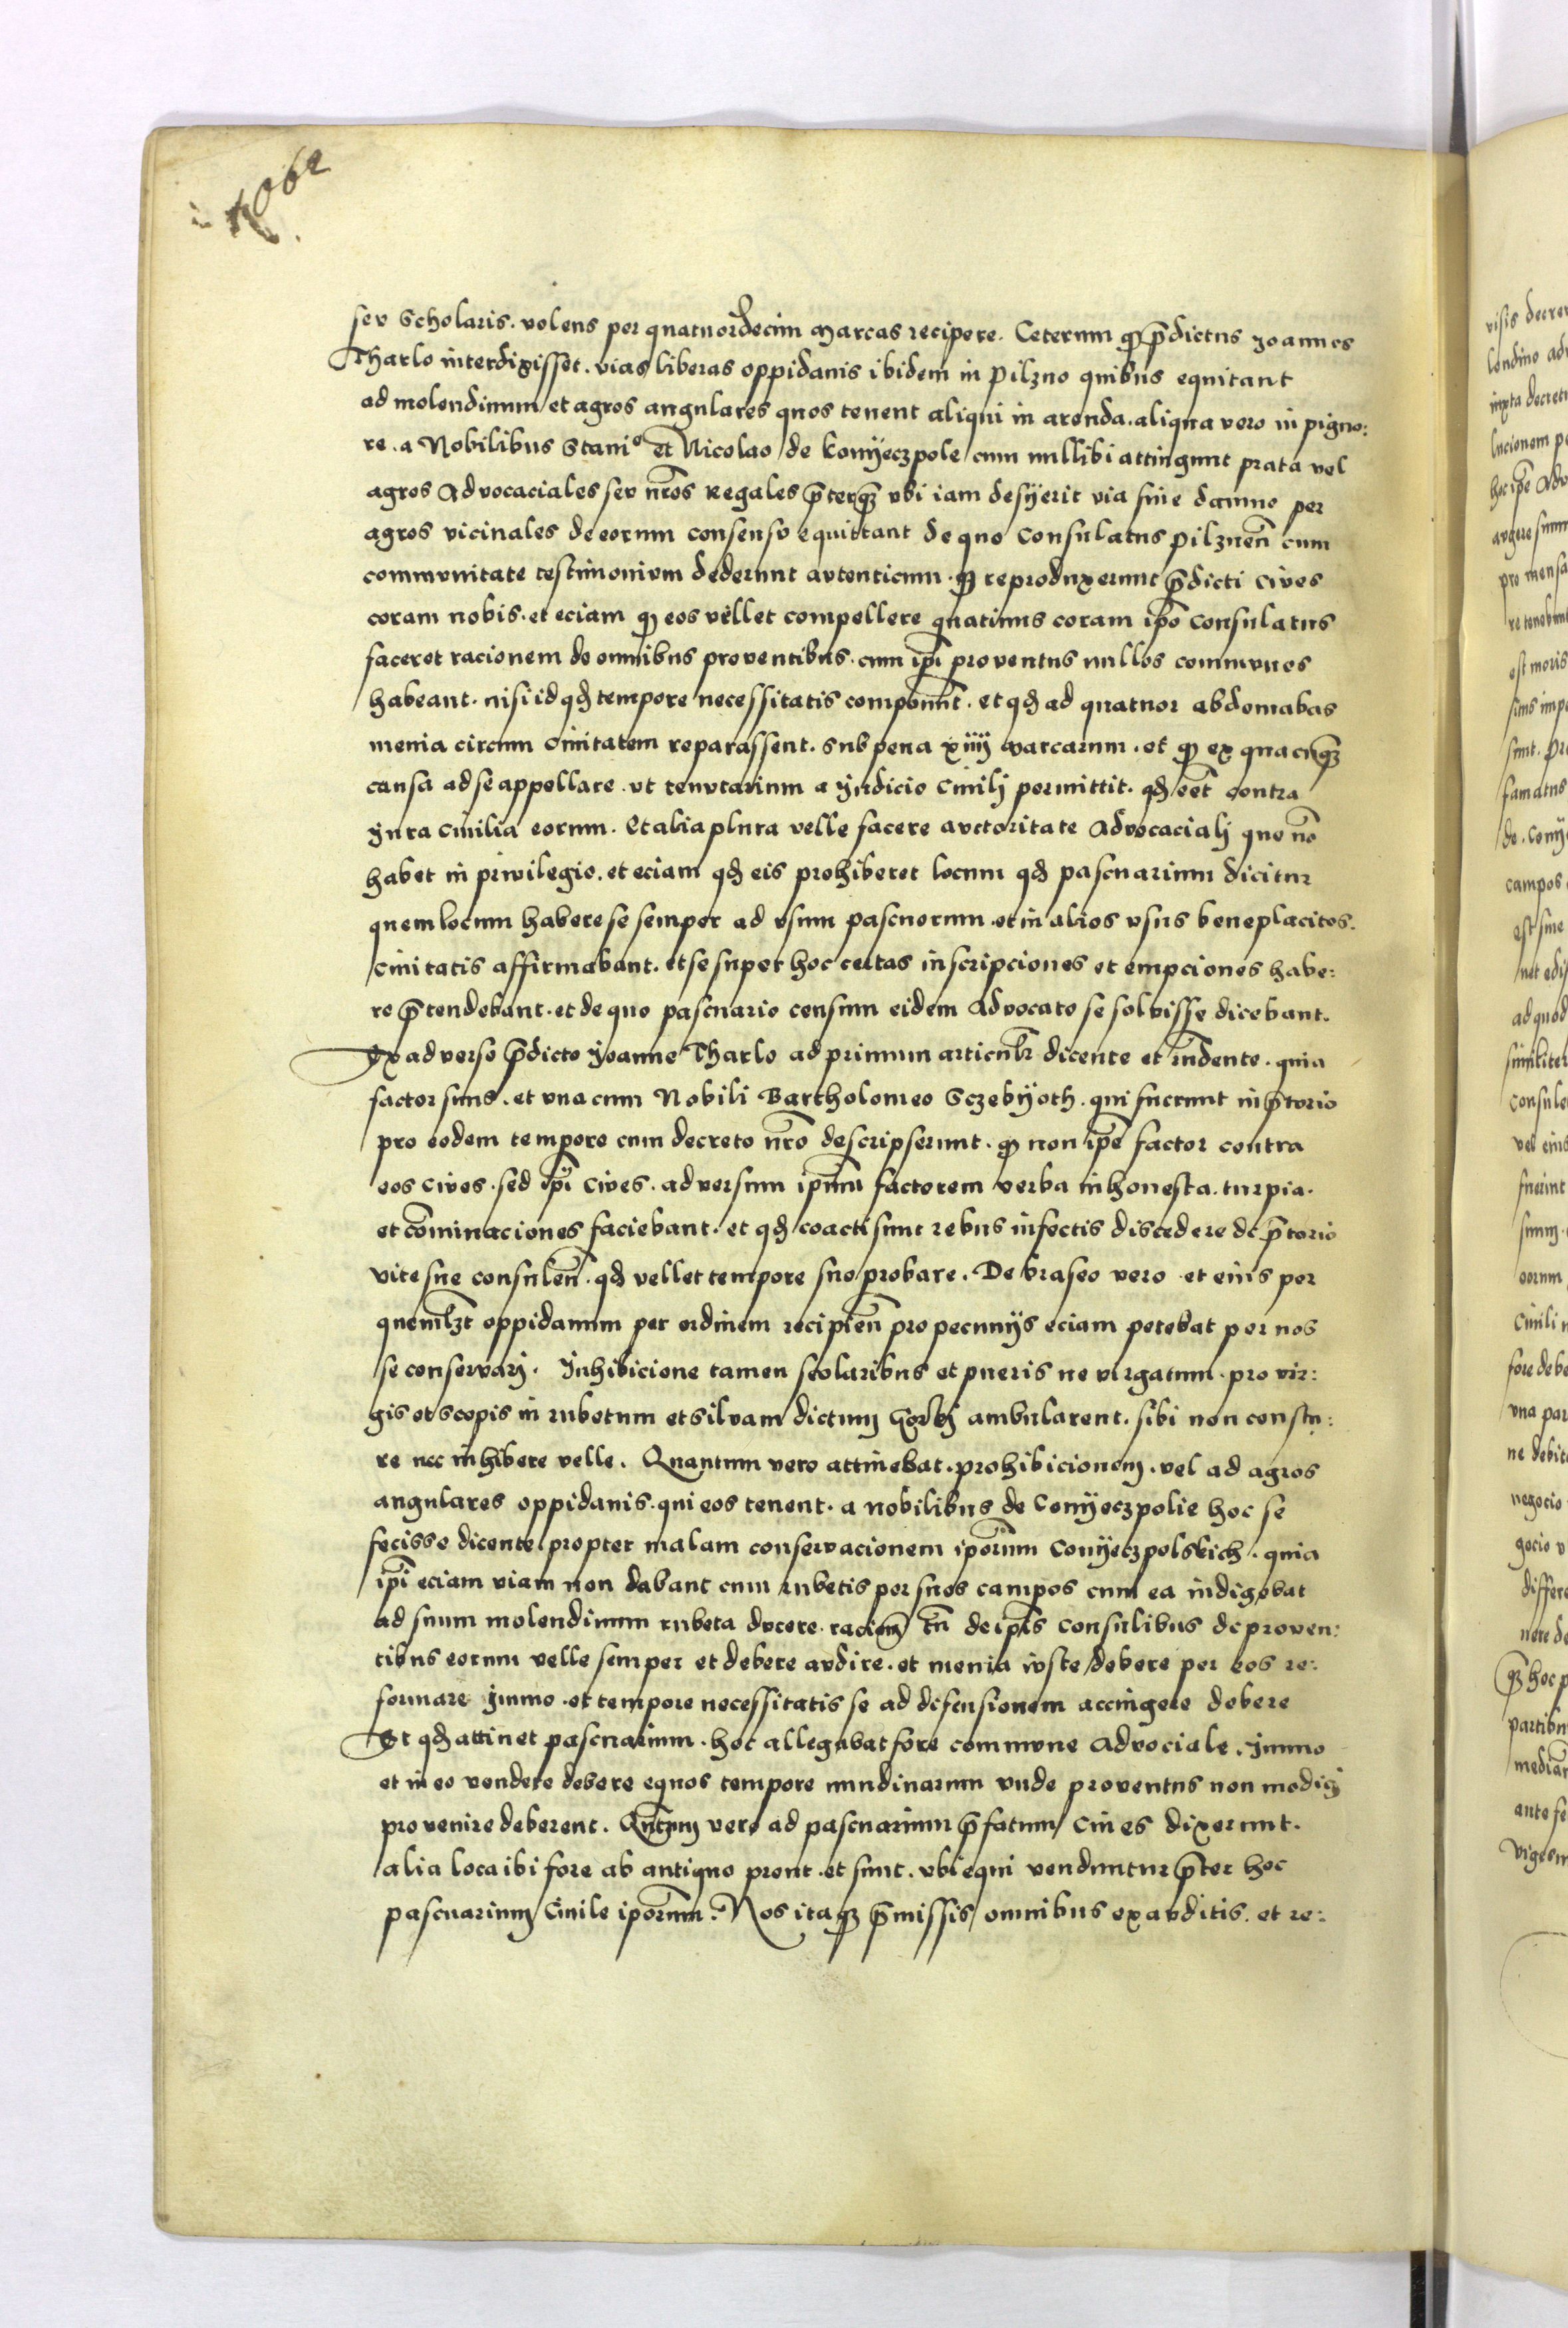 seu Scholaris. volens per quatuordecim marcas recipere. Ceterum qȝ p̄dictus Joannes
Tharlo interdixisset. vias liberas oppidanis ibidem in Pilzno quibus equitant
ad molendinum et agros angulares quos tenent aliqui in arenda. aliqua vero in pigno:
re. a Nobilibus Staniº et Nicolao de Konyeczpole cum nullibi attingunt prata vel
agros Advocaciales seu nr̄os Regales p̄terqȝ vbi iam desyerit via sine damno per
agros vicinales de eorum consensu equittant de quo Consulatus Pilznen̄ cum
communitate testimonium dederunt autenticum. qȝ reproduxerunt p̄dicti Cives
coram nobis. et eciam qȝ eos vellet compellere quatinus coram ip̄o Consulatus
faceret racionem de omnibus proventibus. cum ip̄i proventus nullos communes
habeant. nisi id qḋ tempore necessitatis componūt. et qḋ ad quatuor abdomabas
menia circum Civitatem reparassent. sub pena xiiij marcarum. et qȝ ex quacūqȝ
causa ad se appellare. vt tenutarium a Judicio Civilj permittit. qḋ eēt contra
Jura Civilia eorum. Et alia plura velle facere auctoritate Advocacialj quo nō
habet in privilegio. et eciam qḋ eis prohiberet locum qḋ pascuarium dicitur
quem locum habere se semper ad vsum pascuorum. et in alios vsus beneplacitos.
Civitatis affirmabant. et se super hoc certas inscripciones et empciones habe:
re p̄tendebant. et de quo pascuario censum eidem Advocato se solvisse dicebant.
Ex adverso p̄dicto Joanne Tharlo ad primum articul̄r dicente et rn̄dente. quia
factor suus. et vna cum Nobili Bartholomeo Sczebyoth. qui fuerunt in p̄torio
pro eodem tempore cum decreto nr̄o descripserunt. qȝ non ip̄e factor contra
eos Cives. sed ip̄i Cives. adversum ip̄um factorem verba inhonesta. turpia.
et cōminaciones faciebant. et qḋ coacti sunt rebus infectis discedere de p̄torio
vite sue consulen̄. qḋ vellet tempore suo probare. De braseo vero et eius per
queml̄ȝt oppidanum per ordinem recipien̄ pro pecunijs eciam petebat per nos
se conservarj. Inhibicione tamen scolaribus et pueris ne virgatum. pro vir:
gis et scopis in rubetum et silvam dictum Gorskj ambularent. sibi non consta:
re nec inhibere velle. Quantum vero attinebat. prohibicionem. vel ad agros
angulares oppidanis. qui eos tenent. a nobilibus de Conyeczpolie hoc se
fecisse dicente propter malam conservacionem ip̄orum Conyeczpolskich. quia
ip̄i eciam viam non dabant cum rubetis per suos campos cum ea indigebat
ad suum molendinum rubeta ducere. racionē tn̄ de ip̄is Consulibus de proven:
tibus eorum velle semper et debere audire. et menia iuste debere per eos re:
formare Immo et tempore necessitatis se ad defensionem accingere debere
Et qḋ attinet pascuarium. hoc allegabat fore commune Advociale. Immo
et in eo vendere debere equos tempore nundinarum vnde proventus non modici
provenire deberent. Qn̄tum vero ad pascuarium p̄fatum Cives dixerunt.
alia loca ibi fore ab antiquo prout et sunt. vbi equi venduntur p̄ter hoc
pascuarium Civile ip̄orum. Nos itaqȝ p̄missis omnibus exauditis. et re: